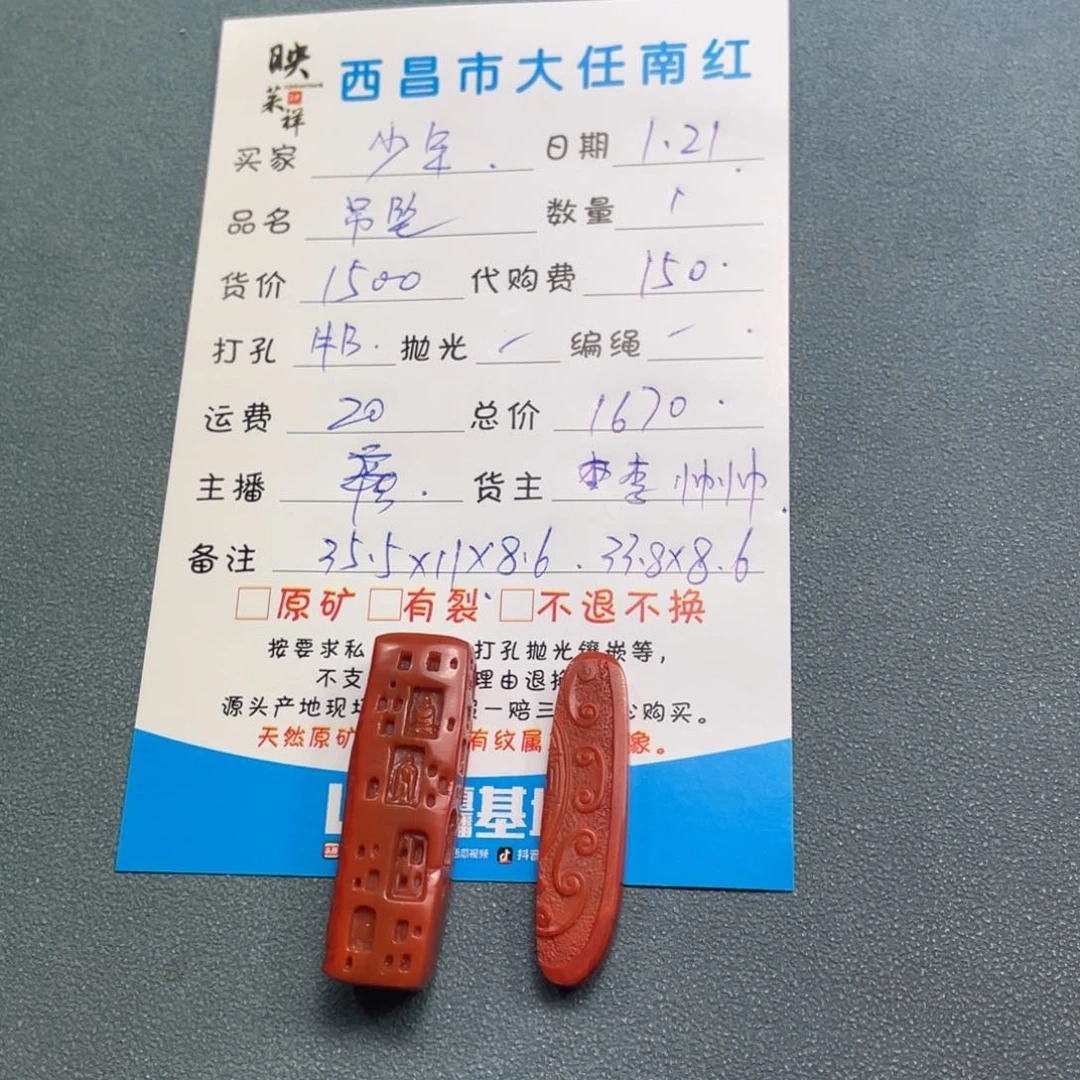 映
莱祥
西昌市大任南红
买家 少宗. 日期 1.21
品名 吊坠 数量 1
货价 1500 代购费 150.
打孔 抛光 编绳
运费 20 总价 1670.
主播 货主 李 帅帅
备注 35.5×11×8.6 . 33.8×8.6
□原矿 □有裂 □不退不换
按要求私 打孔抛光镶嵌等，
不支 理由退换
源头产地现场 一赔三 心购买。
天然原矿 有纹属 象。
基
视频 抖音